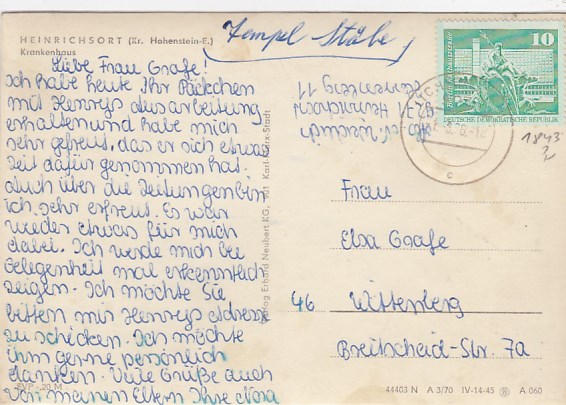 HEINRICHSORT (Kr. Hohenstein-E.)
Krankenhaus
Tempel Stäbe
Liebe Frau Grafe!
Ich habe heute Ihr Päckchen
mit Henrys Ausarbeitung
erhalten und habe mich
sehr gefreut, das er sich etwas
Zeit dafür genommen hat.
Auch über die Zeitungen bin
ich sehr erfreut. Es war
wieder etwas für mich
dabei. Ich werde mich bei
Gelegenheit mal erkenntlich
zeigen. Ich möchte Sie
bitten mir Henrys Adresse
zu schicken. Ich möchte
ihm gerne persönlich
danken. Viele Grüße auch
von meinen Eltern Ihre Nora
EVP -,20 M
Verlag Erhard Neubert KG, Karl-Marx-Stadt
Heinrichsort
11
10
DEUTSCHE DEMOKRATISCHE REPUBLIK
c
1843
Frau
Elsa Grafe
46 Wittenberg
Breitscheid-Str. 7a
44403 N A 3/70 IV-14-45 A 060